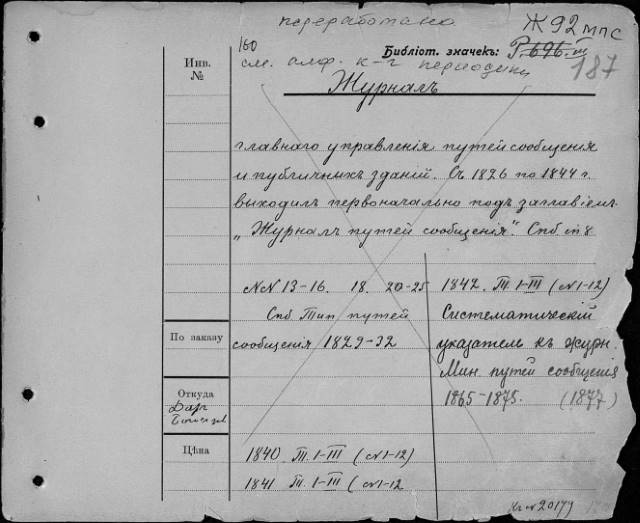 переработано
Ж 92 мпс
160
Библіот. значекъ: Р 696 III
187
см. алф. к-г периодики
Инв.
№
Журналъ
главнаго управленія путей сообщенія
и публичныхъ зданій. Съ 1826 по 1844 г.
выходилъ первоначально подъ заглавіемъ
„Журналъ путей сообщенія". Спб
NN 13-16. 18. 20-25
Спб Тип путей
сообщенія 1829-32
1842. Т. I-III (N 1-12)
Систематическій
указатель къ журн.
Мин. путей сообщенія
1865-1875. (1877)
По заказу
Откуда
Даръ
Цѣна
1840. Т. I-III (N 1-12)
1841 Т. I-III (N 1-12
N 20179